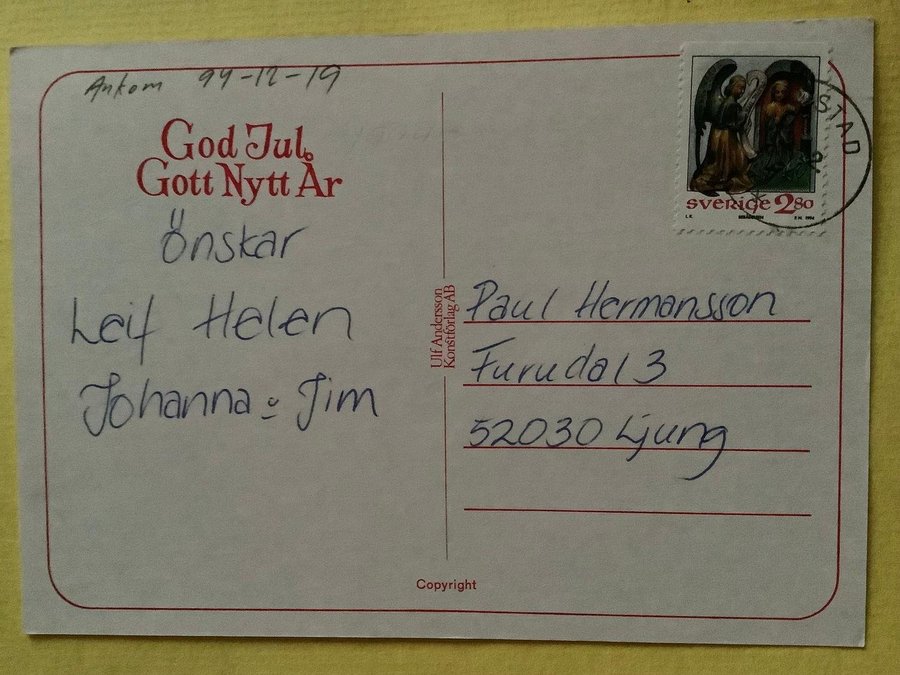 Ankom 94-12-19
God Jul
Gott Nytt År
Önskar
Leif Helen
Johanna o Jim
Ulf Andersson
Konstförlag AB
STAD
SVERIGE 2 80
Paul Hermansson
Furudal 3
52030 Ljung
Copyright